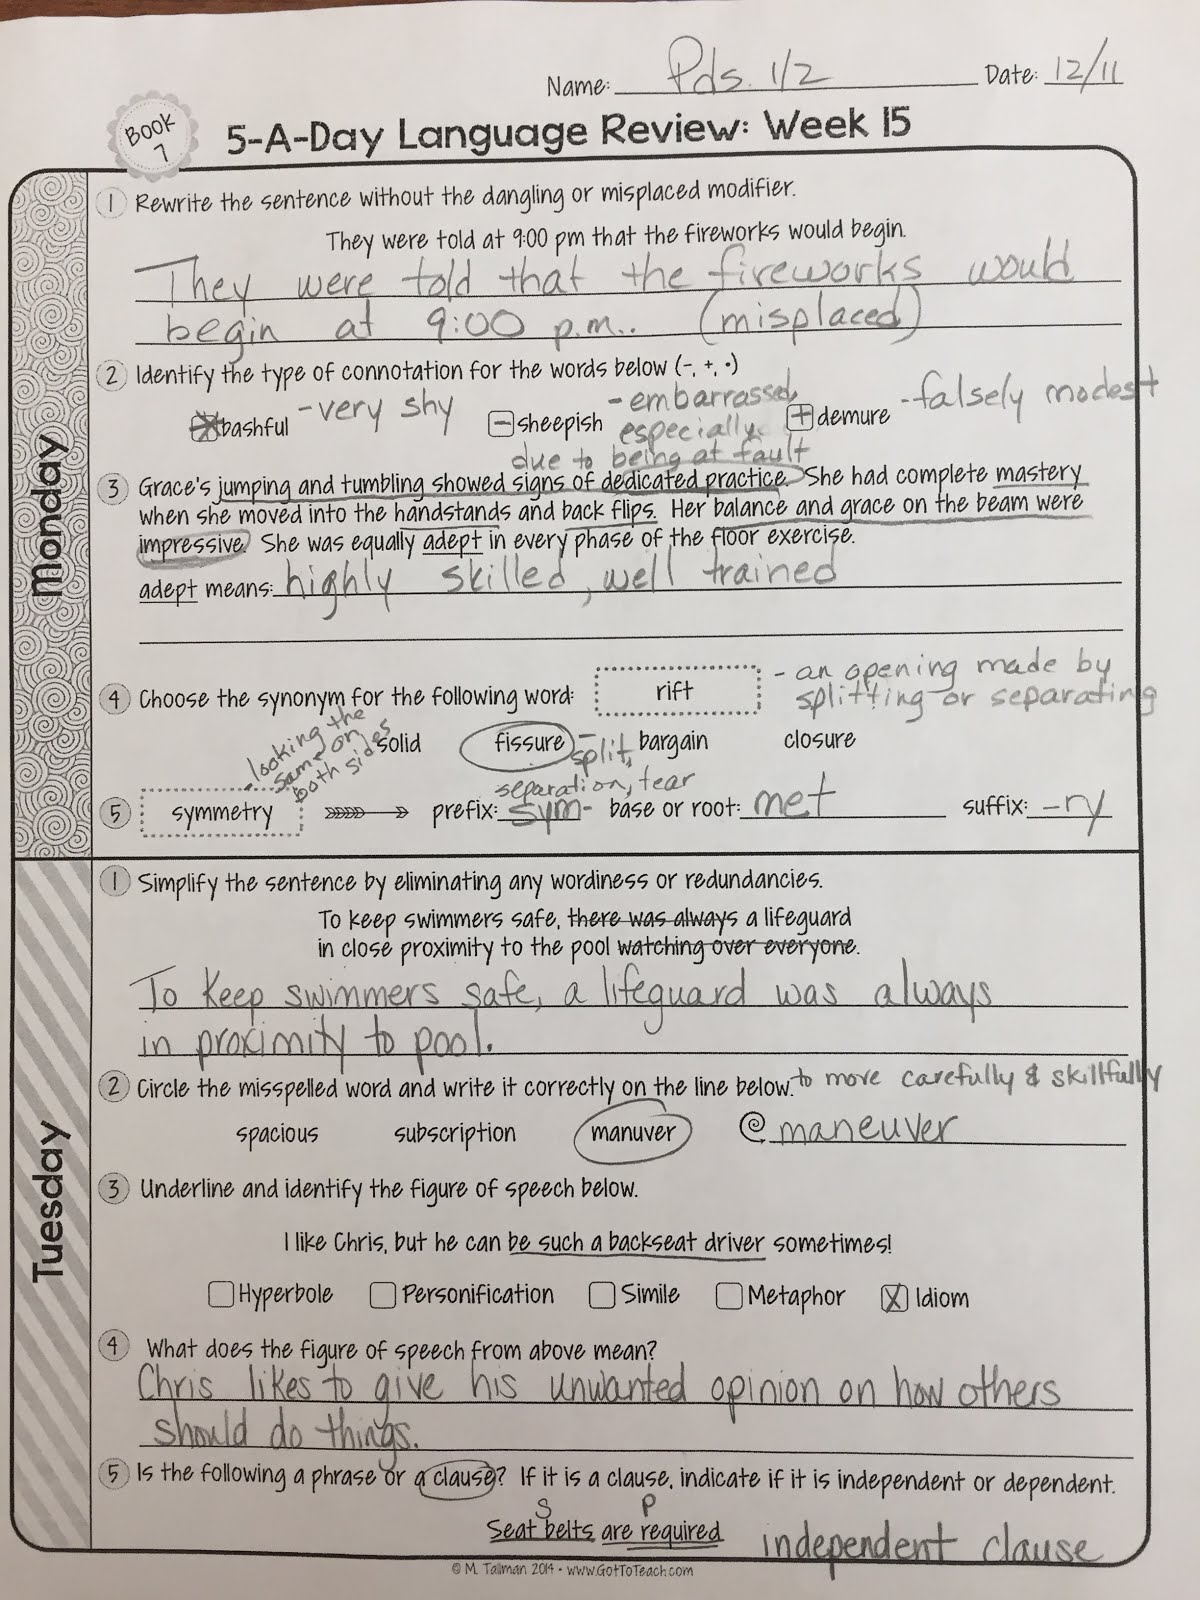 Name: Pds. 1/2 Date: 12/11
Book 7
5-A-Day Language Review: Week 15
Monday
1 Rewrite the sentence without the dangling or misplaced modifier.
They were told at 9:00 pm that the fireworks would begin.
They were told that the fireworks would
begin at 9:00 p.m.. (misplaced)
2 Identify the type of connotation for the words below (-, +, •)
bashful - very shy - sheepish - embarrassed, especially due to being at fault + demure - falsely modest
3 Grace's jumping and tumbling showed signs of dedicated practice. She had complete mastery
when she moved into the handstands and back flips. Her balance and grace on the beam were
impressive. She was equally adept in every phase of the floor exercise.
adept means: highly skilled, well trained
4 Choose the synonym for the following word: rift - an opening made by
splitting or separating
solid fissure - split, separation, tear bargain closure
- looking the
same on
both sides
5 symmetry prefix: sym- base or root: met suffix: -ry
Tuesday
1 Simplify the sentence by eliminating any wordiness or redundancies.
To keep swimmers safe, there was always a lifeguard
in close proximity to the pool watching over everyone.
To keep swimmers safe, a lifeguard was always
in proximity to pool.
2 Circle the misspelled word and write it correctly on the line below. to move carefully & skillfully
spacious subscription manuver maneuver
3 Underline and identify the figure of speech below.
I like Chris, but he can be such a backseat driver sometimes!
Hyperbole Personification Simile Metaphor X Idiom
4 What does the figure of speech from above mean?
Chris likes to give his unwanted opinion on how others
should do things.
5 Is the following a phrase or a clause? If it is a clause, indicate if it is independent or dependent.
S P
Seat belts are required independent clause
© M. Tallman 2014 • www.GotToTeach.com